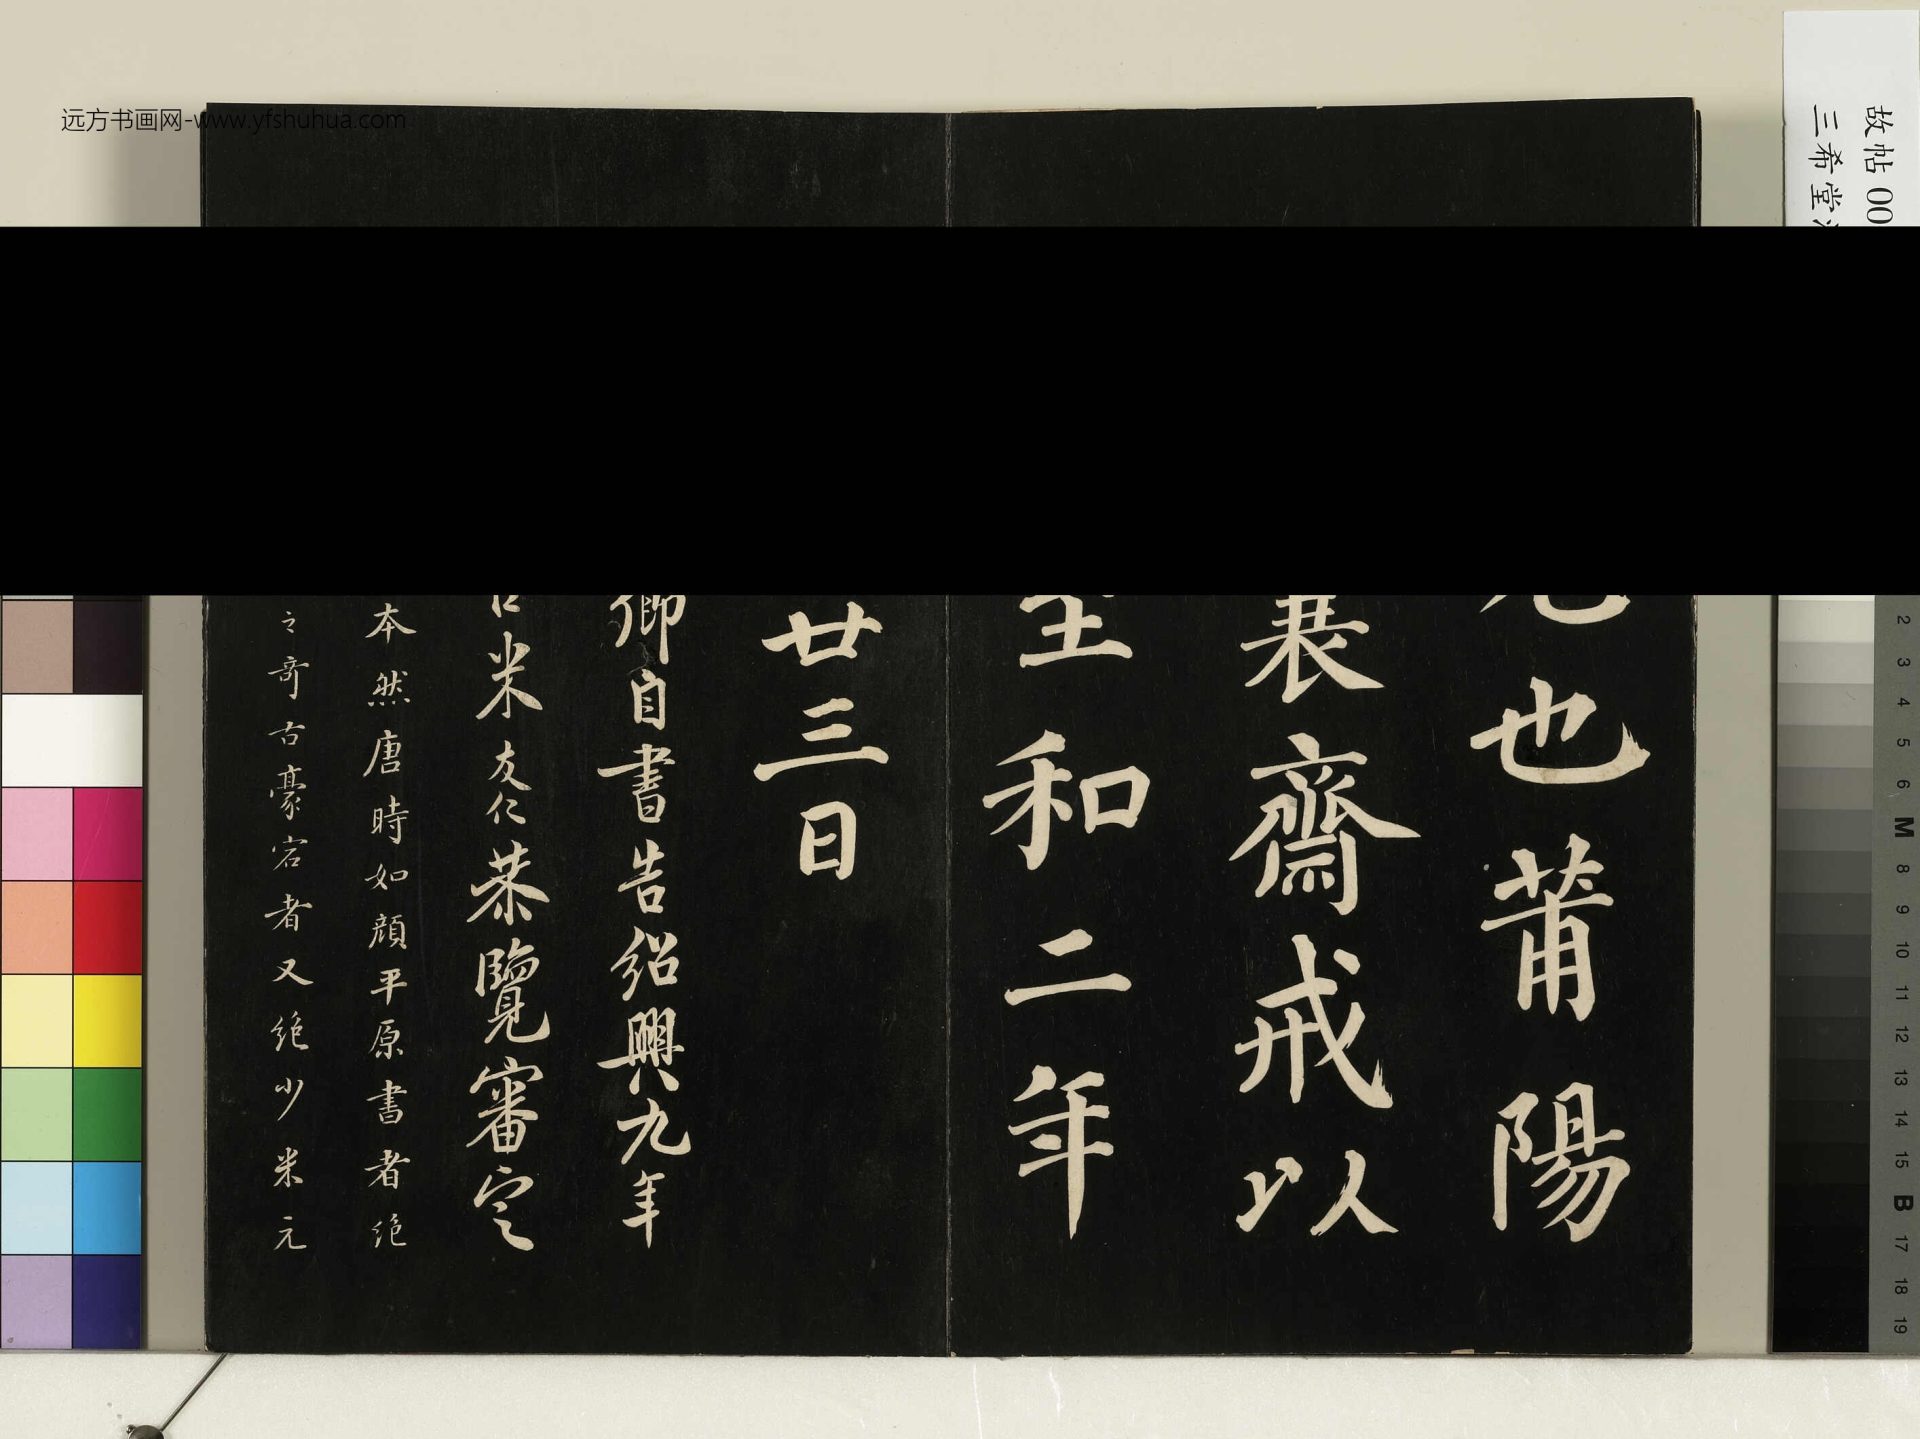 故帖 00
三希堂
远方书画网-www.yfshuhua.com
也莆陽
襄齋戒以
至和二年
廿三日
卿自書告紹興九年
米友仁恭覽審定
本然唐時如顔平原書者絶
之奇古豪宕者又絶少米元
2
3
4
5
6
M
8
9
10
11
12
13
14
15
B
17
18
19